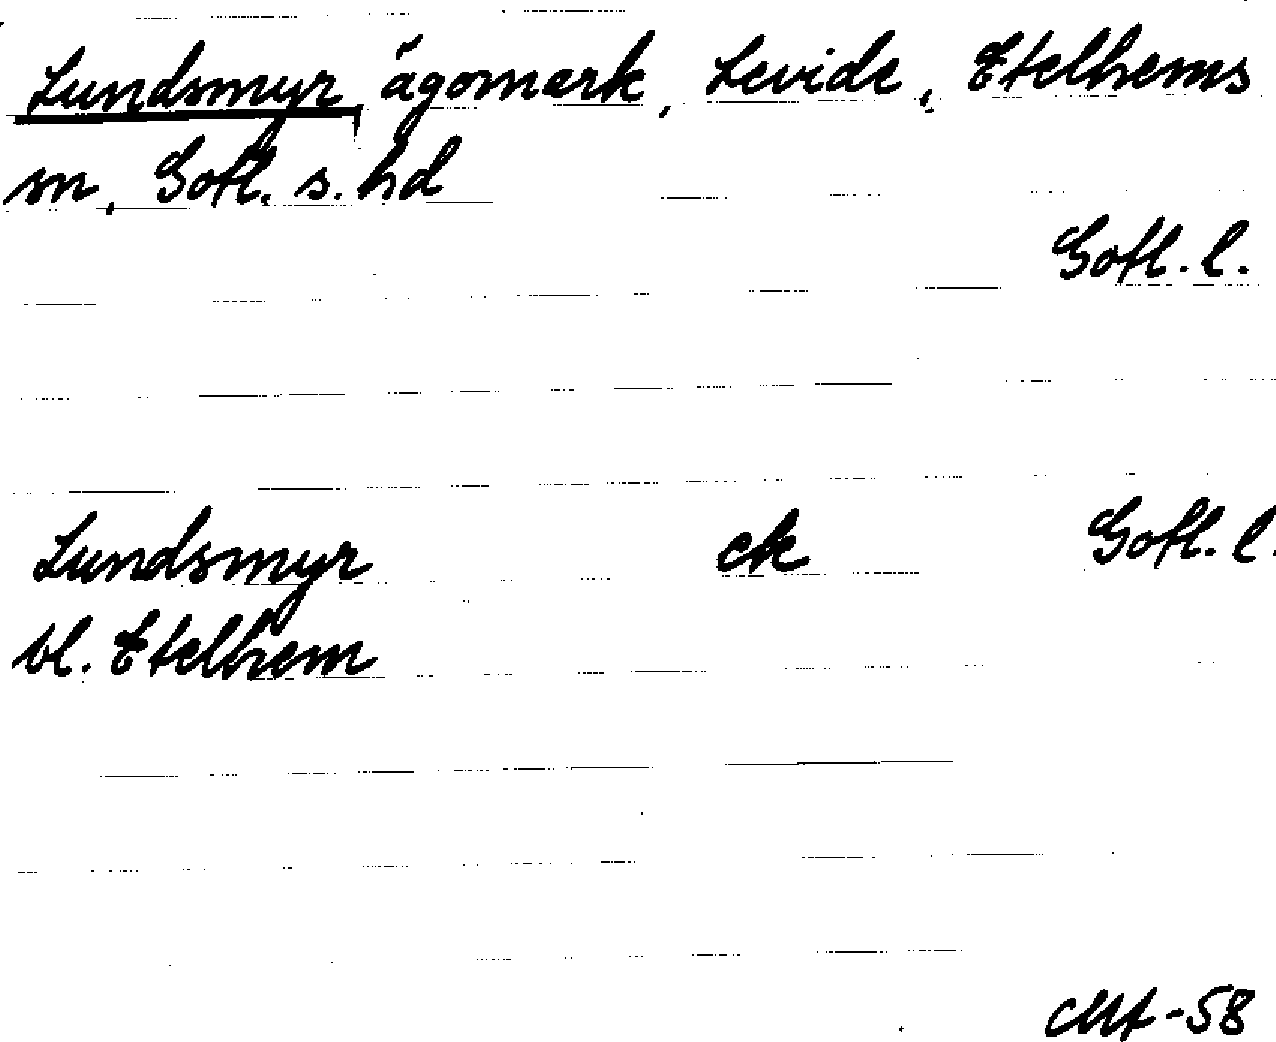 Lundsmyr, ägomark, Levide, Etelhems
sn, Gotl. s. hd
Gotl. l.
Lundsmyr ek Gotl. l.
bl. Etelhem
-58